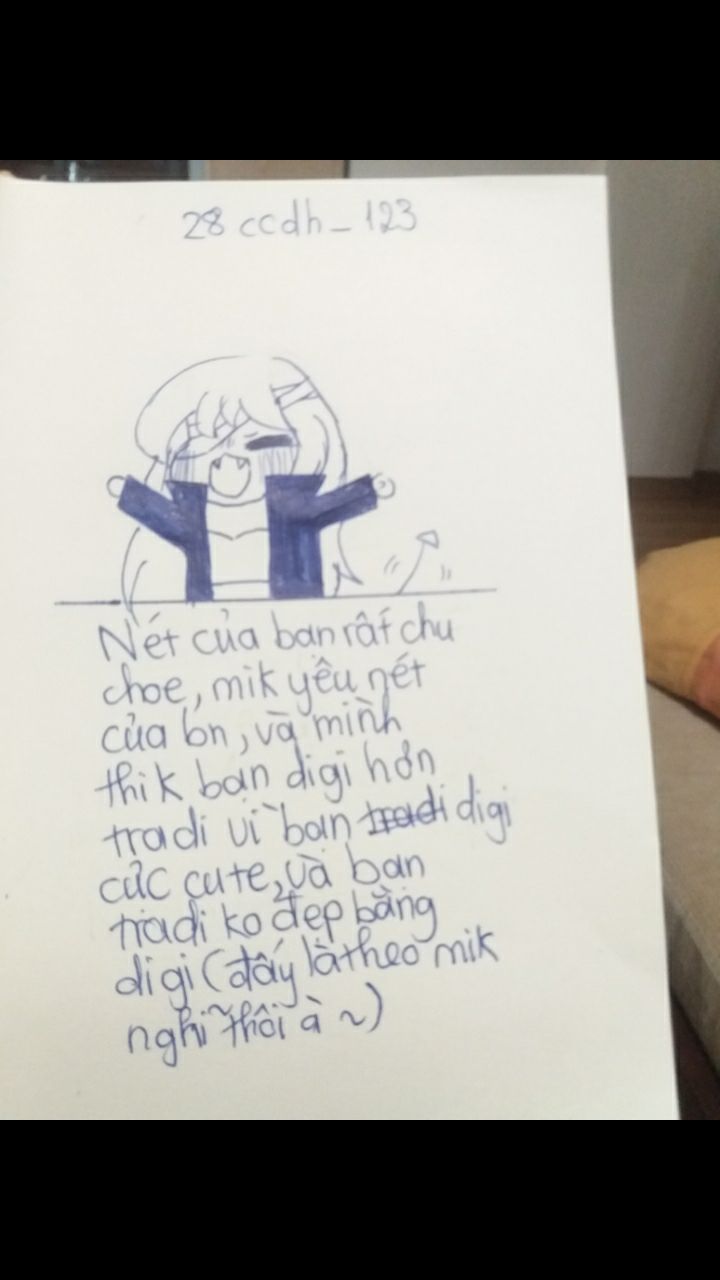 28 ccdh_123
Nét của bạn rất chu
choe, mik yêu nét
của bn, và mình
thik bản digi hơn
tradi vì bản tradi digi
cực cute, và bản
tradi ko đẹp bằng
digi (đấy là theo mik
nghĩ thôi à ~)